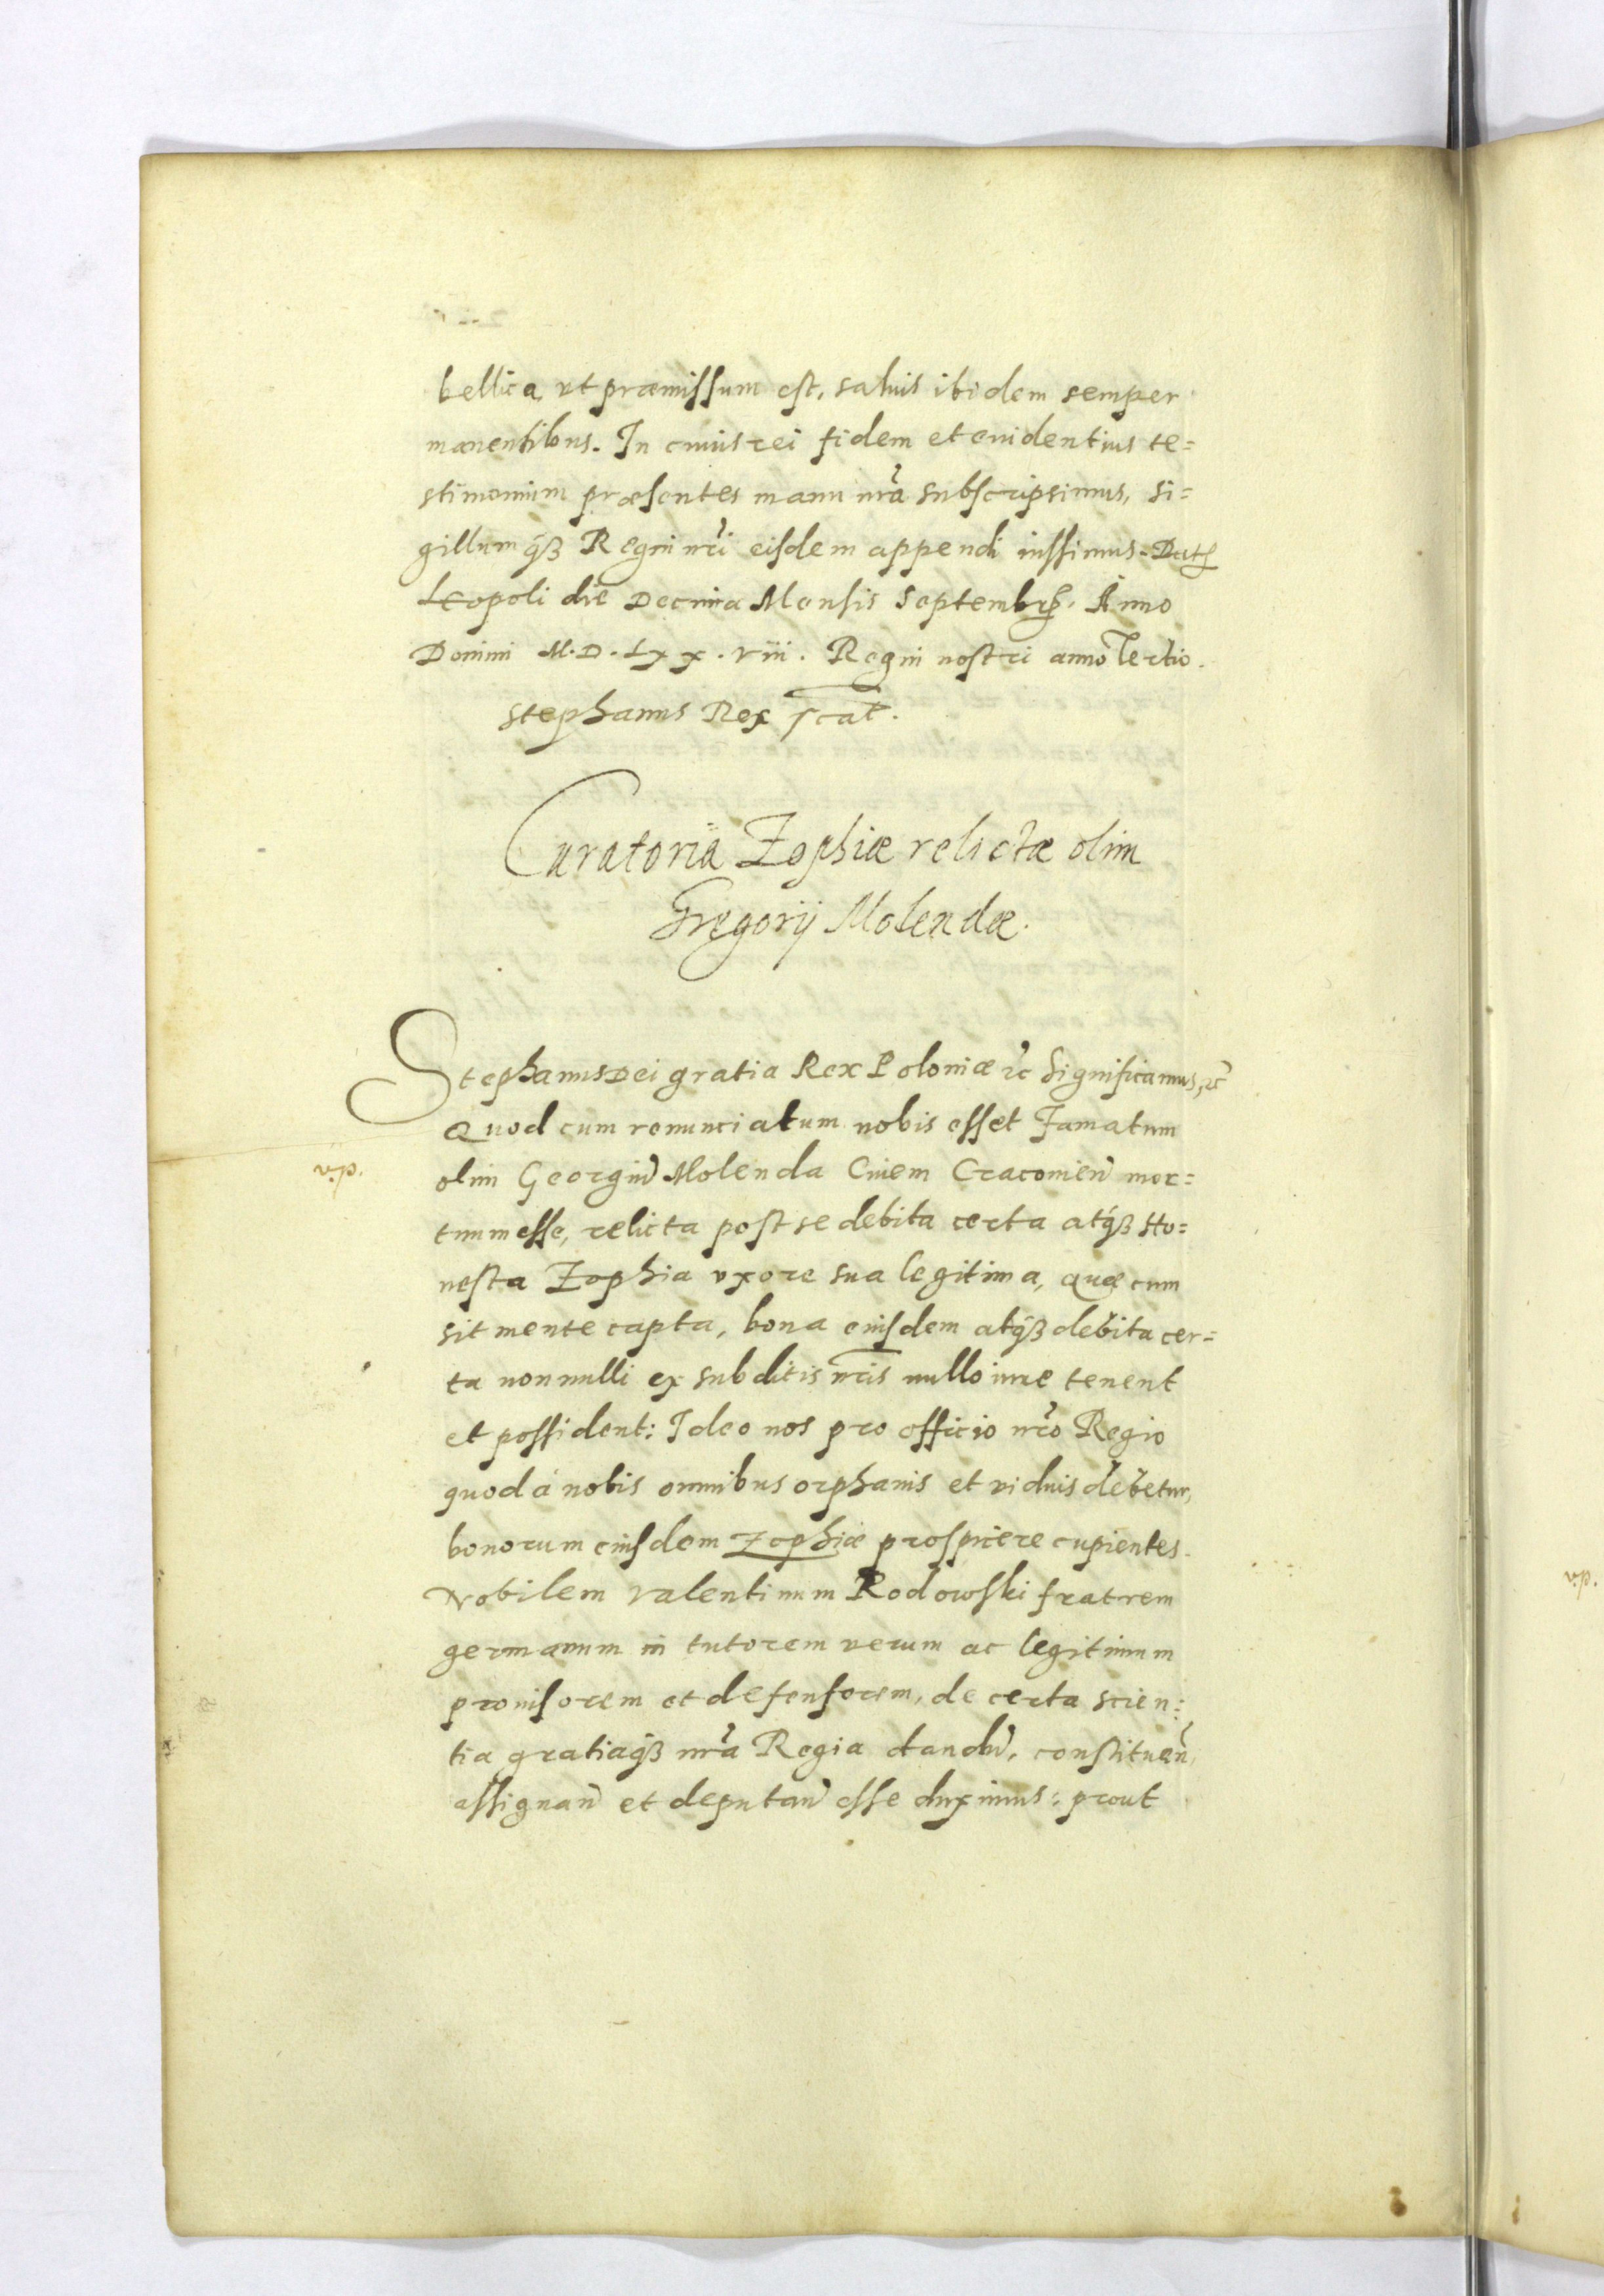 bellica, vt præmissum est, saluis ibidem semper
manentibus. In cuius rei fidem et euidentius te=
stimonium præsentes manu nrã subscripsimus, si=
gillumq̃ꝫ Regni nrĩ eisdem appendi iussimus. Datꝭ
Leopoli die Decima Mensis Septembrꝭ. Anno
Domini M.D.Lxx.viii. Regni nostri anno Tertio.
Stephanus Rex sc̃at.
Curatoria Zophiæ relictæ olim
Gregorij Molendæ.
Stephanus Dei gratia Rex Poloniæ ꝛc̃ Significamus, ꝛc̃
Quod cum renunciatum nobis esset Famatum
olim Georgiũ Molenda Ciuem Cracouieñ mor=
tuum esse, relicta post se debita certa atq̃ꝫ Ho=
nesta Zophia vxore sua legitima, quæ cum
sit mente capta, bona eiusdem atq̃ꝫ debita cer=
ta nonnulli ex subditis nrĩs nullo iure tenent
et possident: Ideo nos pro officio nrõ Regio
quod à nobis omnibus orphanis et viduis debetur,
bonorum eiusdem Zophiæ prospicere cupientes.
Nobilem Valentinum Rodowski fratrem
germanum in tutorem verum ac legitimum
prouisorem et defensorem, de certa scien=
tia gratiaq̃ꝫ nrã Regia dandũ, constitueñ,
assignañ et deputañ esse duximus: prout